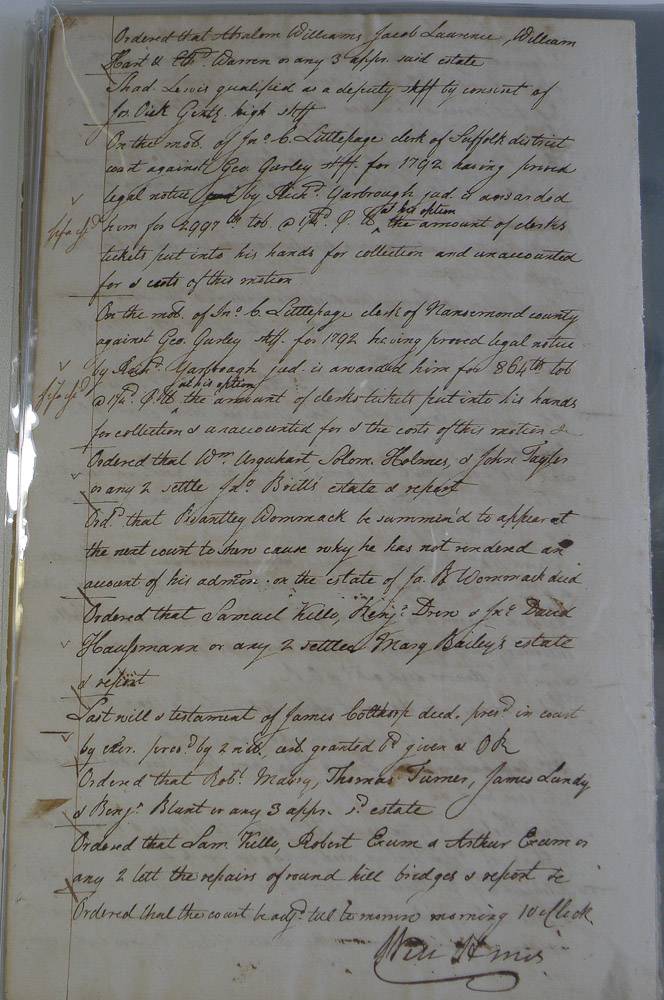 Ordered that Absalom Williams, Jacob Laurence, William
Hart & Ethd. Warren or any 3 appr. said estate
Shad. Lewis qualified as a deputy shff by consent of
Jas. Dick Gentn. high shff
On the mon. of Jno C. Littlepage clerk of Suffolk district
court against Geo. Gurley shff. for 1792 having proved
legal notice by Richd. Yarbrough jud. is awarded
him for 2997 lb tob @ 17/ P. Ct at his option the amount of clerks
tickets put into his hands for collection and unaccounted
for & costs of this motion
On the mon. of Jno C. Littlepage clerk of Nansemond county
against Geo. Gurley shff. for 1792 having proved legal notice
by Richd. Yarbrough jud. is awarded him for 864 lb tob
@ 17/ P. Ct at his option the amount of clerks tickets put into his hands
for collection & unaccounted for & the costs of this motion &
Ordered that Wm Urquhart, Solom. Holmes, & John Taylor
or any 2 settle Jno Britt's estate & report
Ordd. that Brantley Wommack be summon'd to appear at
the next court to shew cause why he has not rendered an
account of his admon. on the estate of Ja. B Wommack decd
Ordered that Samuel Kello, Benjn. Drew & Jno David
Haussmann or any 2 settle Mary Bailey's estate
& report
Last will & testament of James Colthorp deced. presd. in court
by exor. proved by 2 wits, cert. granted bd given & OR
Ordered that Robt. Maury, Thomas Turner, James Lundy
& Benjn. Blunt or any 3 appr. sd. estate
Ordered that Sam. Kello, Robert Exum & Arthur Exum or
any 2 lett the repairs of round hill bridges & report &c
Ordered that the court be adjd. till to morrow morning 10 oClock
Will Hines